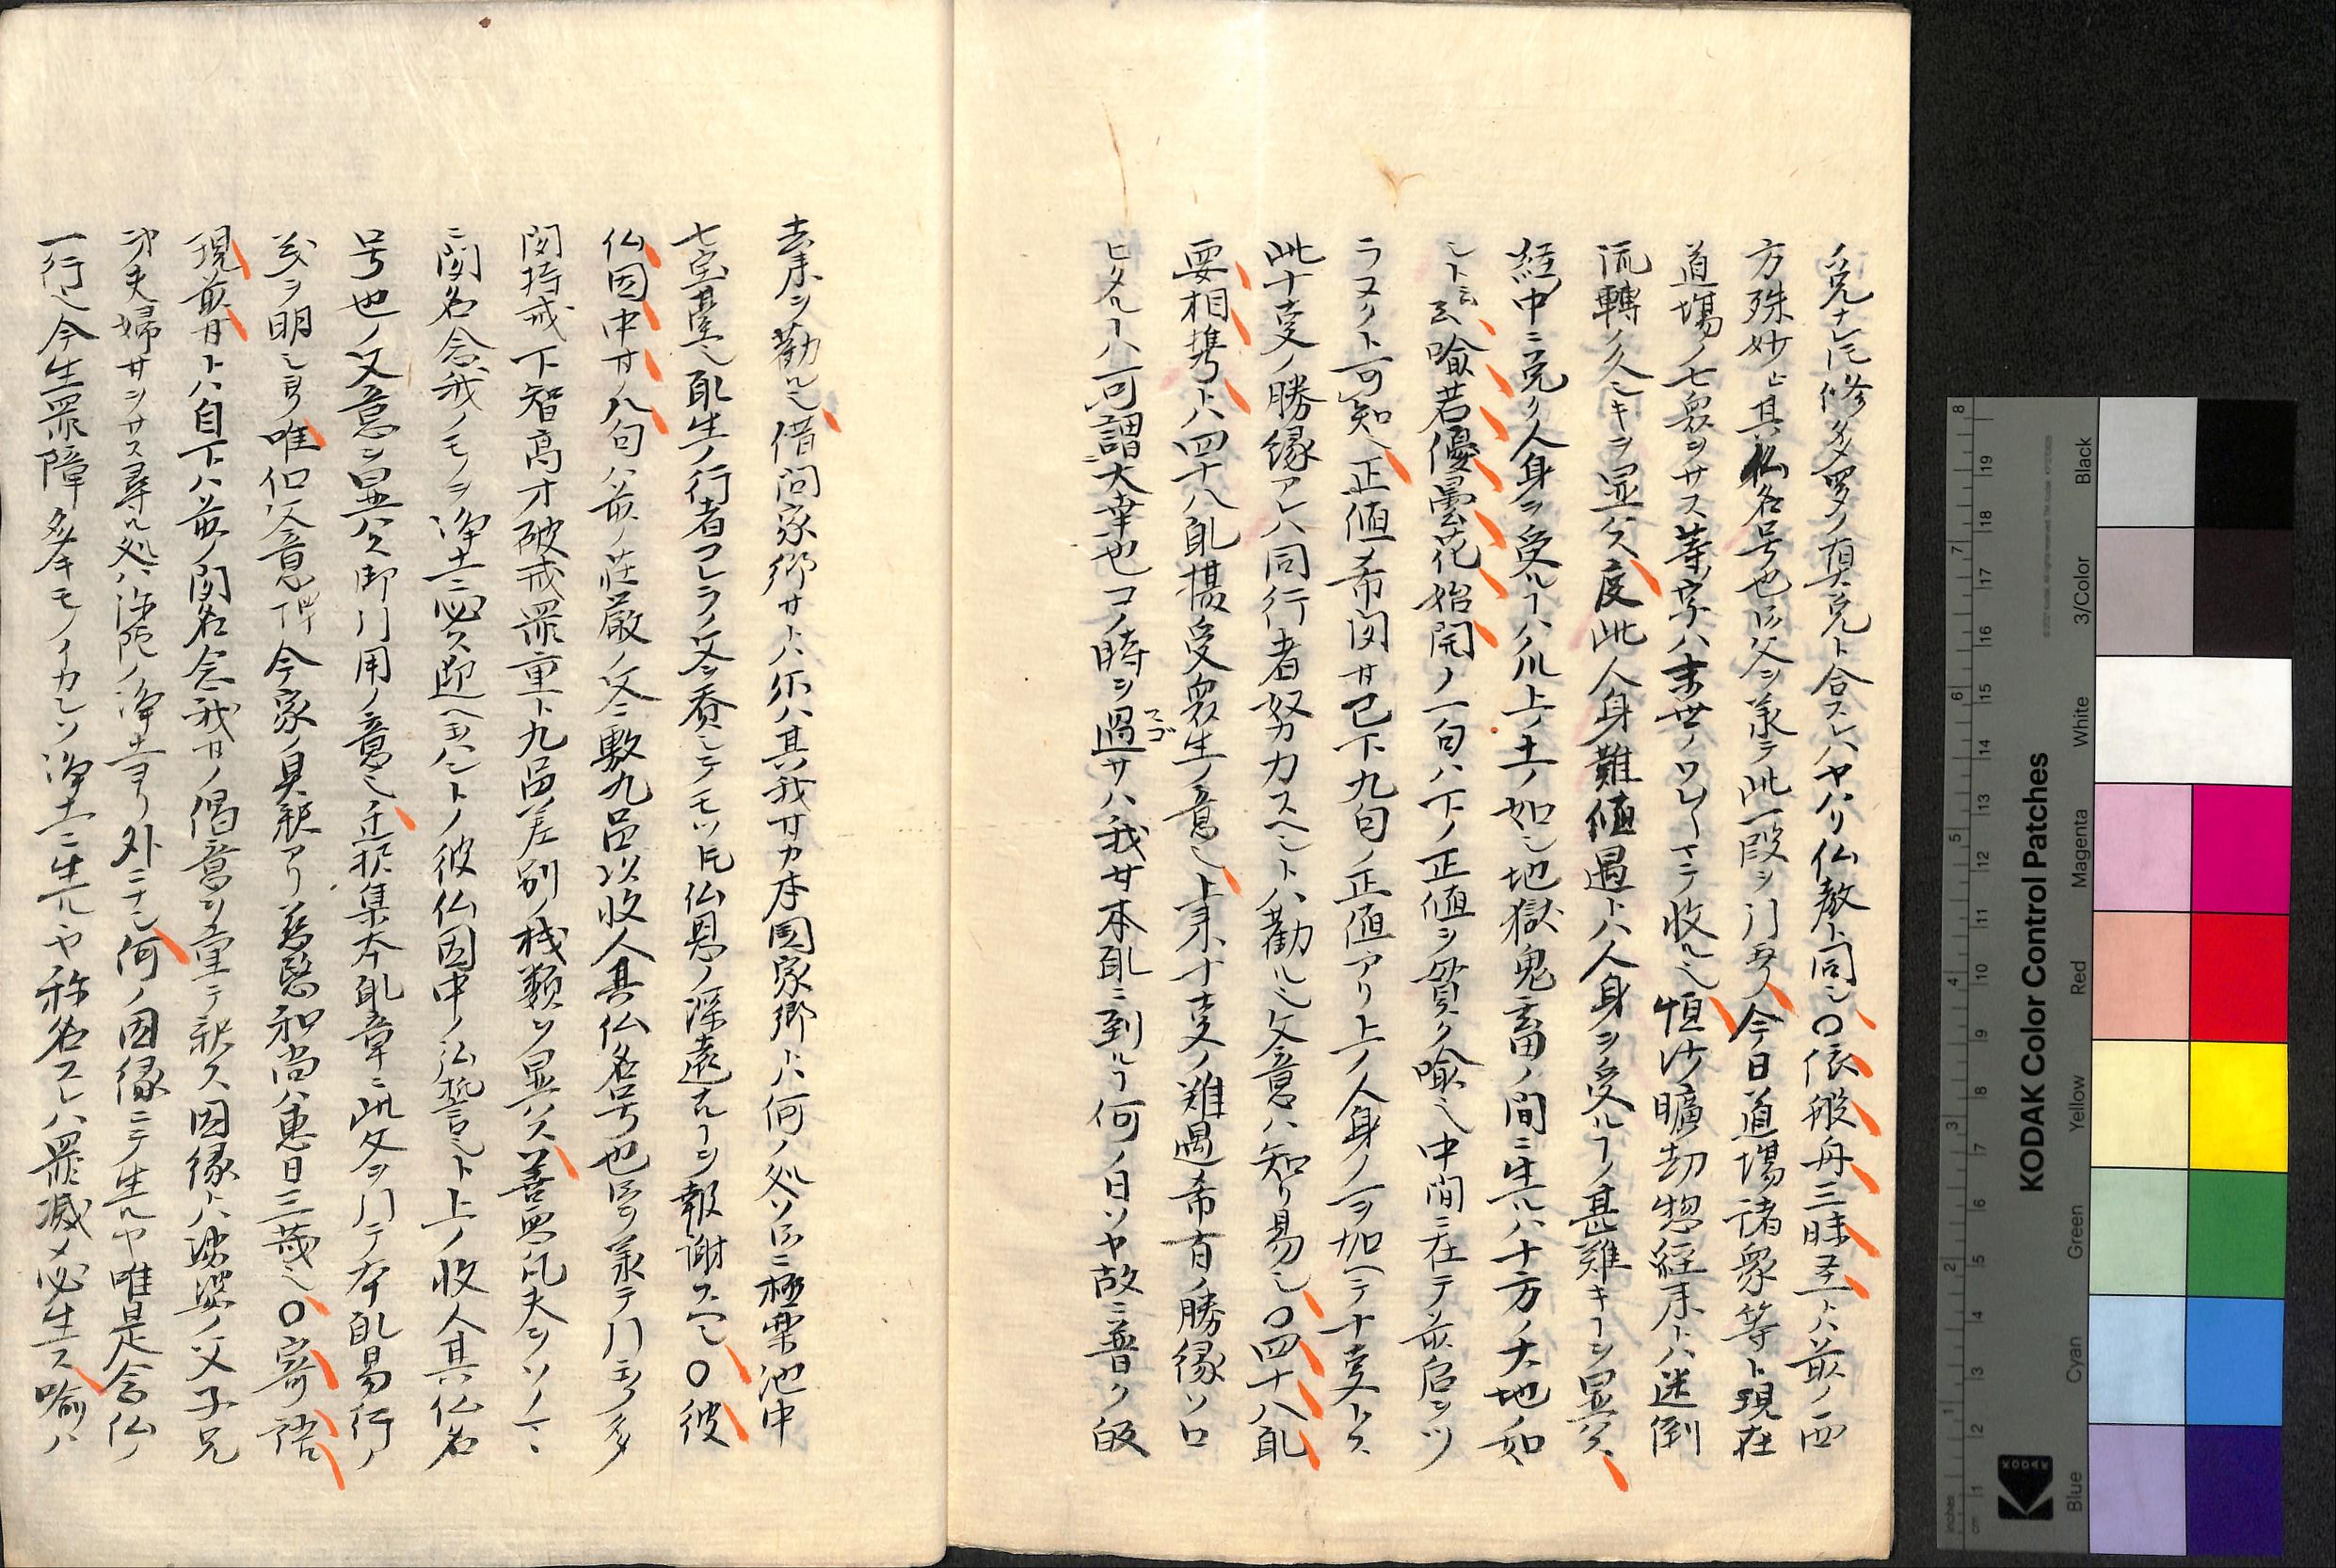 ノ兌ナレ𪜈修多羅ノ項兌ト合スレハヤハリ仏教ト同シ〇依般舟三昧圣トハ前ノ西
方殊妙ヒ其仏名号也ニ父ヲ承テ此一段ヲ引玉フ今日道場諸衆等ト現在
道場ノ七衆ヲサス等字ハ末世ノワレ〳〵マテ收ル也恒沙曠劫惣経来トハ迷倒
流轉ノ久シキヲ显ハス度此人身難値遇トハ人身ヲ受ルヿノ甚難キヿヲ显ハス
経中ニ兌ク人身ヲ受ルヿハ爪上ノ土ノ如シ地獄鬼畜ノ間ニ生ルハ十方ノ大地ノ如
シト云云喩若優曇花始開ノ一句ハ下ノ正値ヲ貫ク喩也中間ニ在テ前后ヲツ
ラヌクト可知正値希闻廿已下九句ノ正値アリ上ノ人身ノ一ヲ加ヘテ十变トス
此十变ノ勝縁アレハ同行者努力スヘシト勧ル也文意ハ知リ易シ〇四十八𠃵
要相携トハ四十八𠃵摂受衆生ノ意也上来十变ノ難遇希有ノ勝縁ソロ
ヒタルヿハ可謂大幸也コノ時ヲ過サハ我廿本𠃵ニ到ルヿ何ノ日ソヤ故ニ普ク皈
去来ヲ勧ル也借问家郷廿トハ伱ハ其我廿カ本国家郷トハ何ノ処ソ仏ニ極楽池中
七宝䑓也𠃵生ノ行者コレラノ文ヲ看シテモツ𪜈仏恩ノ深遠ナルヿヲ報謝スヘシ〇彼
仏因中廿ノ八句ハ前ノ莊厳ノ文ニ敷九品以收人其仏名号也ヲ承テ引玉フ多
闻持戒下智高才破戒罪重ト九品差別ノ機類ヲ显ハス善悪凡夫ヲソノマヽ
ニ闻名念我ノモノヲ浄土ニ必ス迎ヘ玉ハントノ彼仏因中ノ弘誓ヒト上ノ收人其仏名
号也ノ文意ヲ显ハス御引用ノ意也正択集本𠃵章ニ此文ヲ引テ本𠃵易行ノ
義ヲ明シ玉フ唯但文意 今家ノ具釈アリ慈愍和尚ハ惠日三蔵也〇寄語
現前廿トハ自下ハ前ノ闻名念我廿ノ偈意ヲ重テ釈ス因縁トハ娑婆ノ父子兄
弟夫婦廿ヲサス尋ル処ハ弥陀ノ浄土ヨリ外ニナシ何ノ因縁ニテ生ルヤ唯是念仏ノ
一行也今生罪障多キモノイカヽシソ浄土ニ生ルヤ称名スレハ罪滅メ必生ス喩ハ